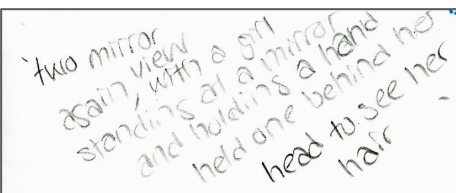 two mirror
again view
, with a girl
standing at a mirror
and holding a hand
held one behind her
head to see her
hair